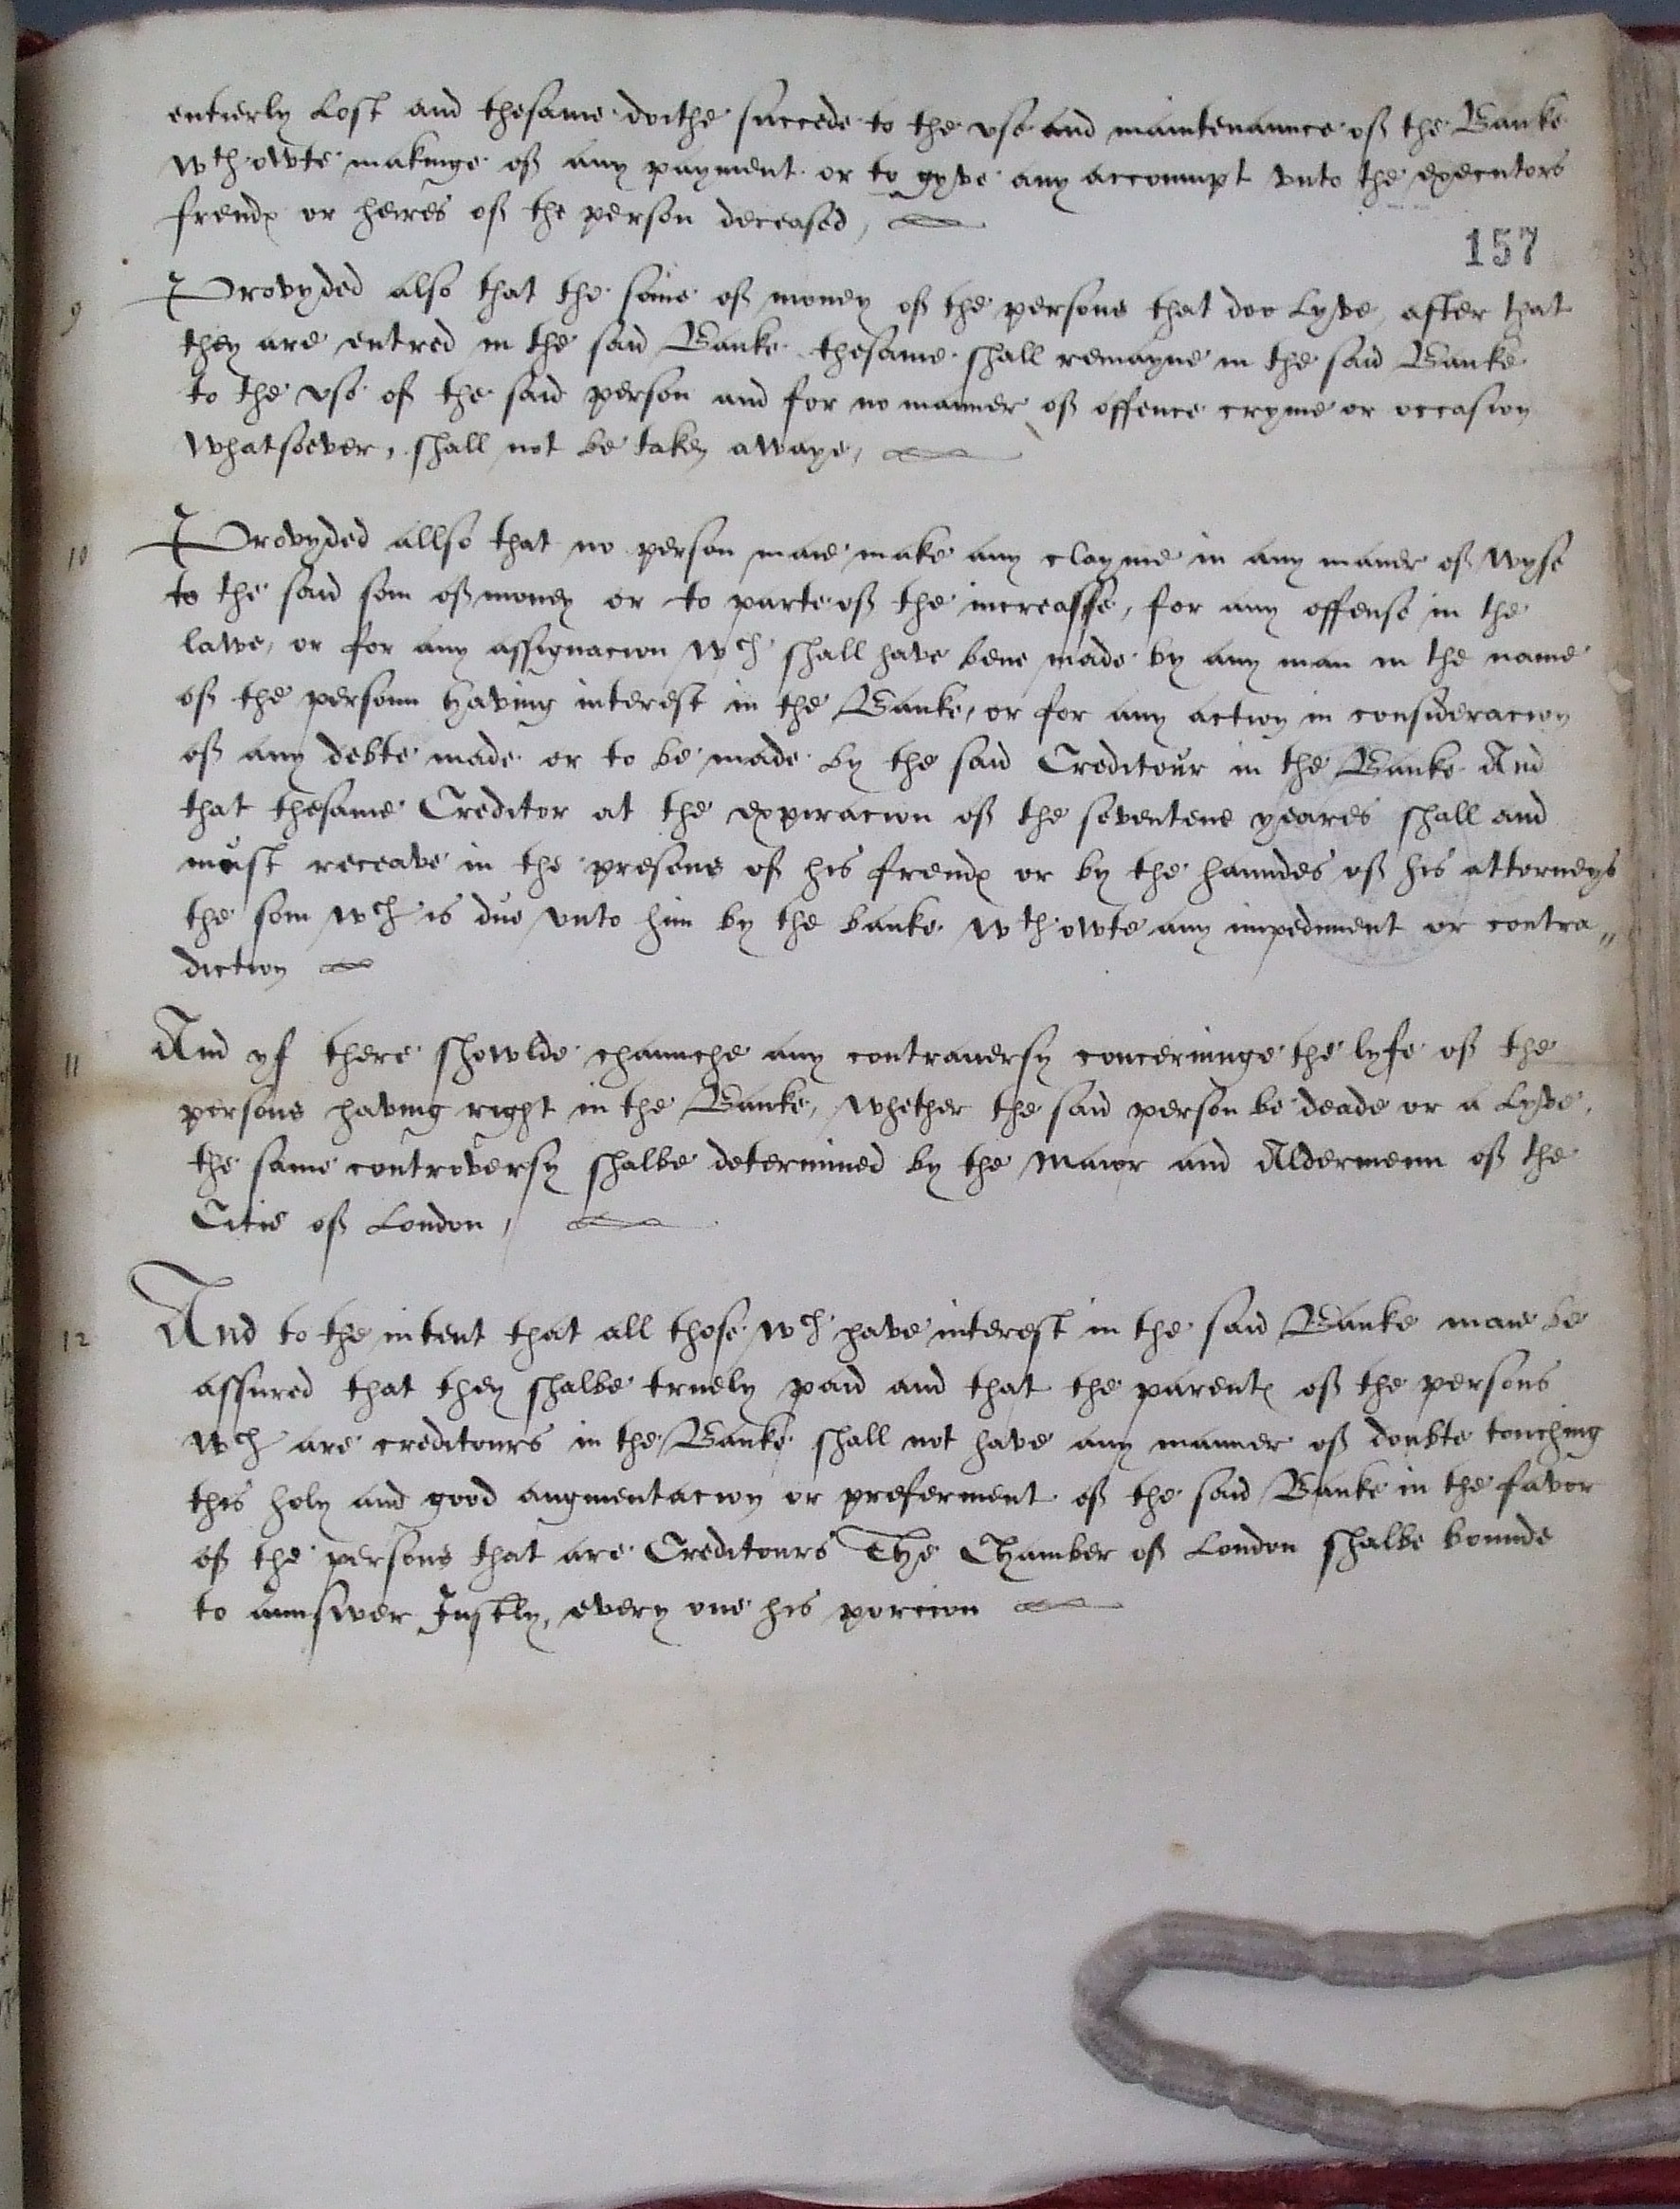 entierly Lost and thesame doithe succede to the vse and maintenaunce of the Banke
wth owte makinge of any payment or to gyve any accoumpt vnto the executors
frendȩ or heires of the person deceased,
157
9 Provyded also that the some of money of the persons that doo Lyve, after that
they are entred in the said Banke thesame shall remayne in the said Banke
to the vse of the said person and for no manner of offence cryme or occasion
whatsoever, shall not be taken awaye,
10 Provyded allso that no person maie make any clayme in any maner of wyse
to the said som of money or to parte of the increasse, for any offense in the
lawe, or for any assignacion wch shall have bene made by any man in the name
of the personn having interest in the Banke, or for any action in consideracion
of any debte made or to be made by the said Creditour in the Banke And
that thesame Creditor at the expiracion of the seventene yeares shall and
must receave in the presens of his frendȩ or by the haundes of his attorneys
the som wch is due vnto him by the banke wth owte any impediment or contra„
diction
11 And yf there showlde chaunche any contrauersy concerninge the lyfe of the
persons having right in the Banke, whether the said person be deade or a Lyve,
the same controversy shalbe determined by the Maior and Aldermenn of the
Citie of London,
12 And to the intent that all those wch have interest in the said Banke maie be
assured that they shalbe truely paid and that the parentȩ of the persons
wch are creditours in the Banke shall not have any manner of doubte touching
this holy and good augmentacion or preferment of the said Banke in the favor
of the persons that are Creditours The Chamber of London shalbe bounde
to aunswer Justly, every one his porcion